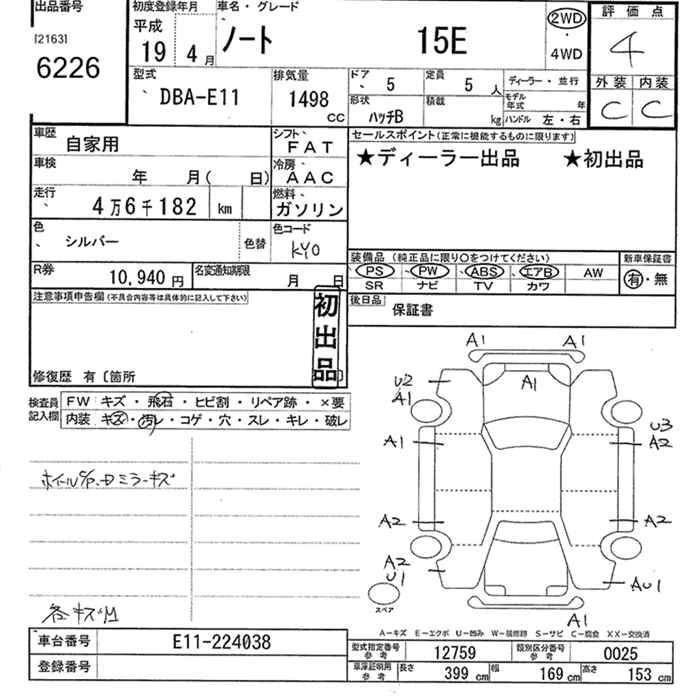 出品番号
[2163]
6226
初度登録年月
平成
19 4月
車名・グレード
ノート 15E
2WD
・
4WD
評価点
4
外装 内装
C C
型式
DBA-E11
排気量
1498
CC
ドア
、 5
定員
5 人
ディーラー・並行
形状
ハッチB
積載
kg
モデル年式 年
ハンドル 左・右
車歴
自家用
シフト、
FAT
車検
年 月( 日)
冷房、
AAC
走行
、 4万6千182 km
燃料、
ガソリン
色
、 シルバー
色替
色コード
KY0
R券
10,940円
名変通知期限
月 日
セールスポイント(正常に機能するものに限ります)
★ディーラー出品 ★初出品
装備品 (純正品に限り○をつけてください)
PS PW ABS エアB AW
SR ナビ TV カワ
新車保証書
有・無
後日品
保証書
注意事項申告欄(不具合内容等は具体的に記入して下さい)
初出品
修復歴 有〔箇所
検査員記入欄
FW キズ・飛石・ヒビ割・リペア跡・×要
内装 キズ・汚レ・コゲ・穴・スレ・キレ・破レ
A1 A1
A1
U2
A1
U3
A1
A2
A2
A2
A2
U1
AU1
A1
スペア
各キズM
A-キズ E-エクボ U-凹み W-補修跡 S-サビ C-腐食 XX-交換済
車台番号
E11-224038
登録番号
型式指定番号参考
12759
類別区分番号参考
0025
車庫証明用参考
長さ 399 cm
幅 169 cm
高さ 153 cm